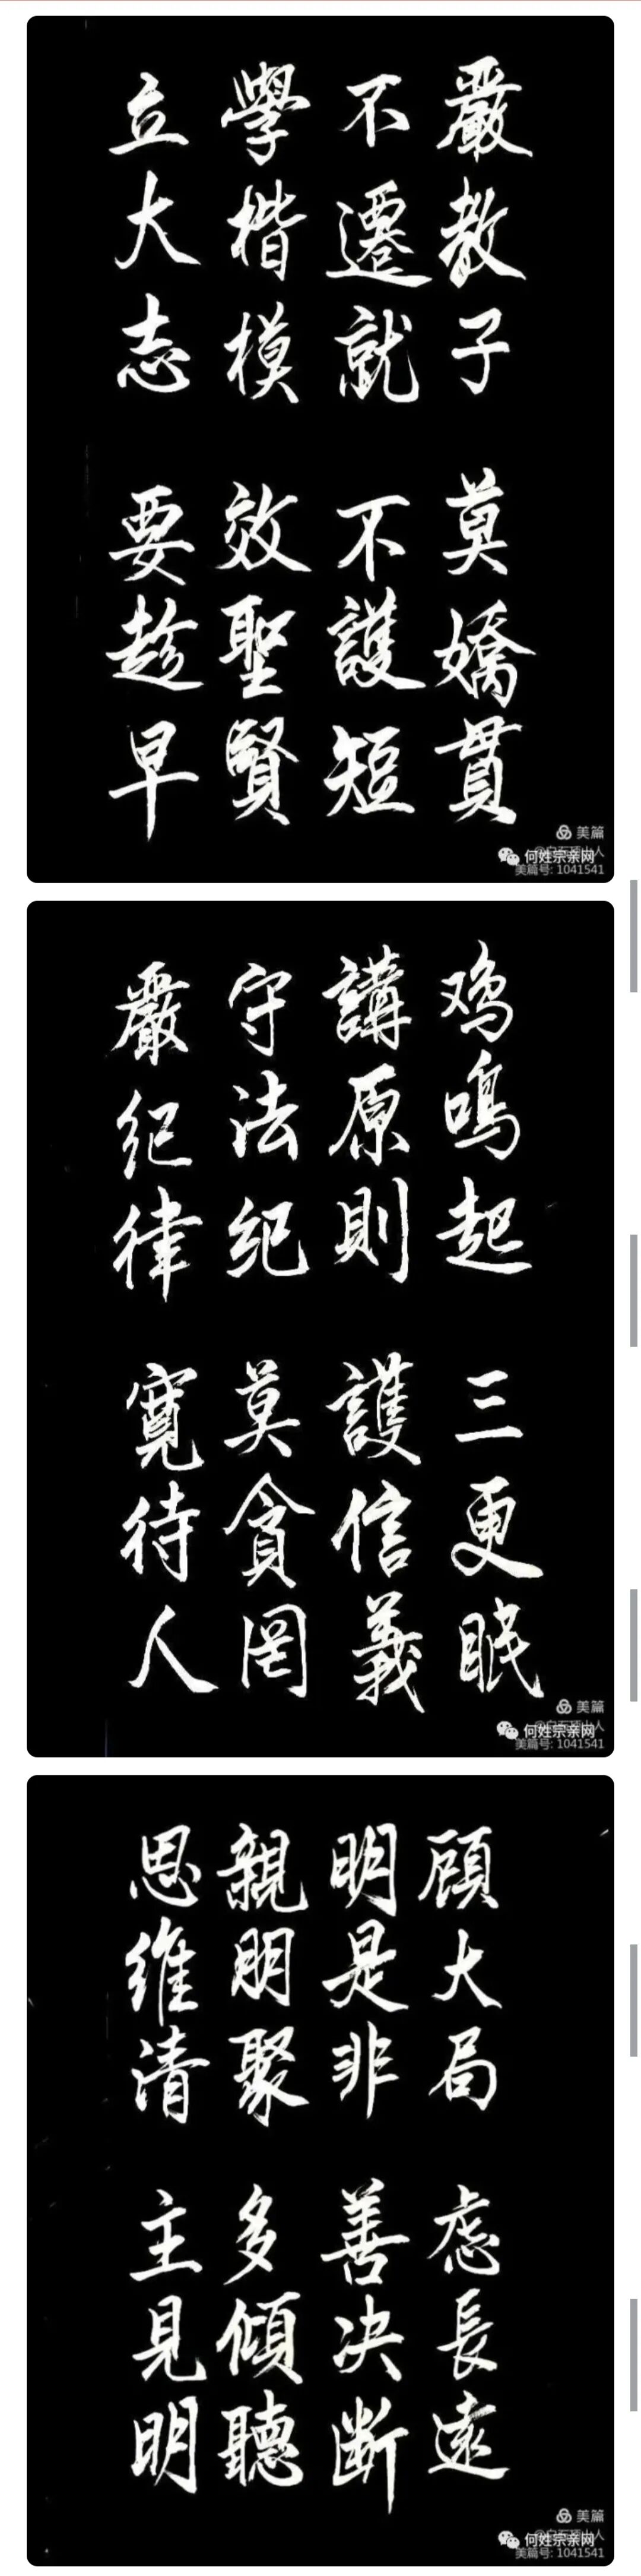 嚴教子 莫嬌貫
不遷就 不護短
學楷模 效聖賢
立大志 要趁早
美篇
何姓宗亲网
美篇号: 1041541
鸡鳴起 三更眠
講原則 護信義
守法纪 莫貪罔
嚴纪律 寬待人
美篇
何姓宗亲网
美篇号: 1041541
顧大局 慮長遠
明是非 善决断
親朋聚 多傾聽
思维清 主見明
美篇
何姓宗亲网
美篇号: 1041541